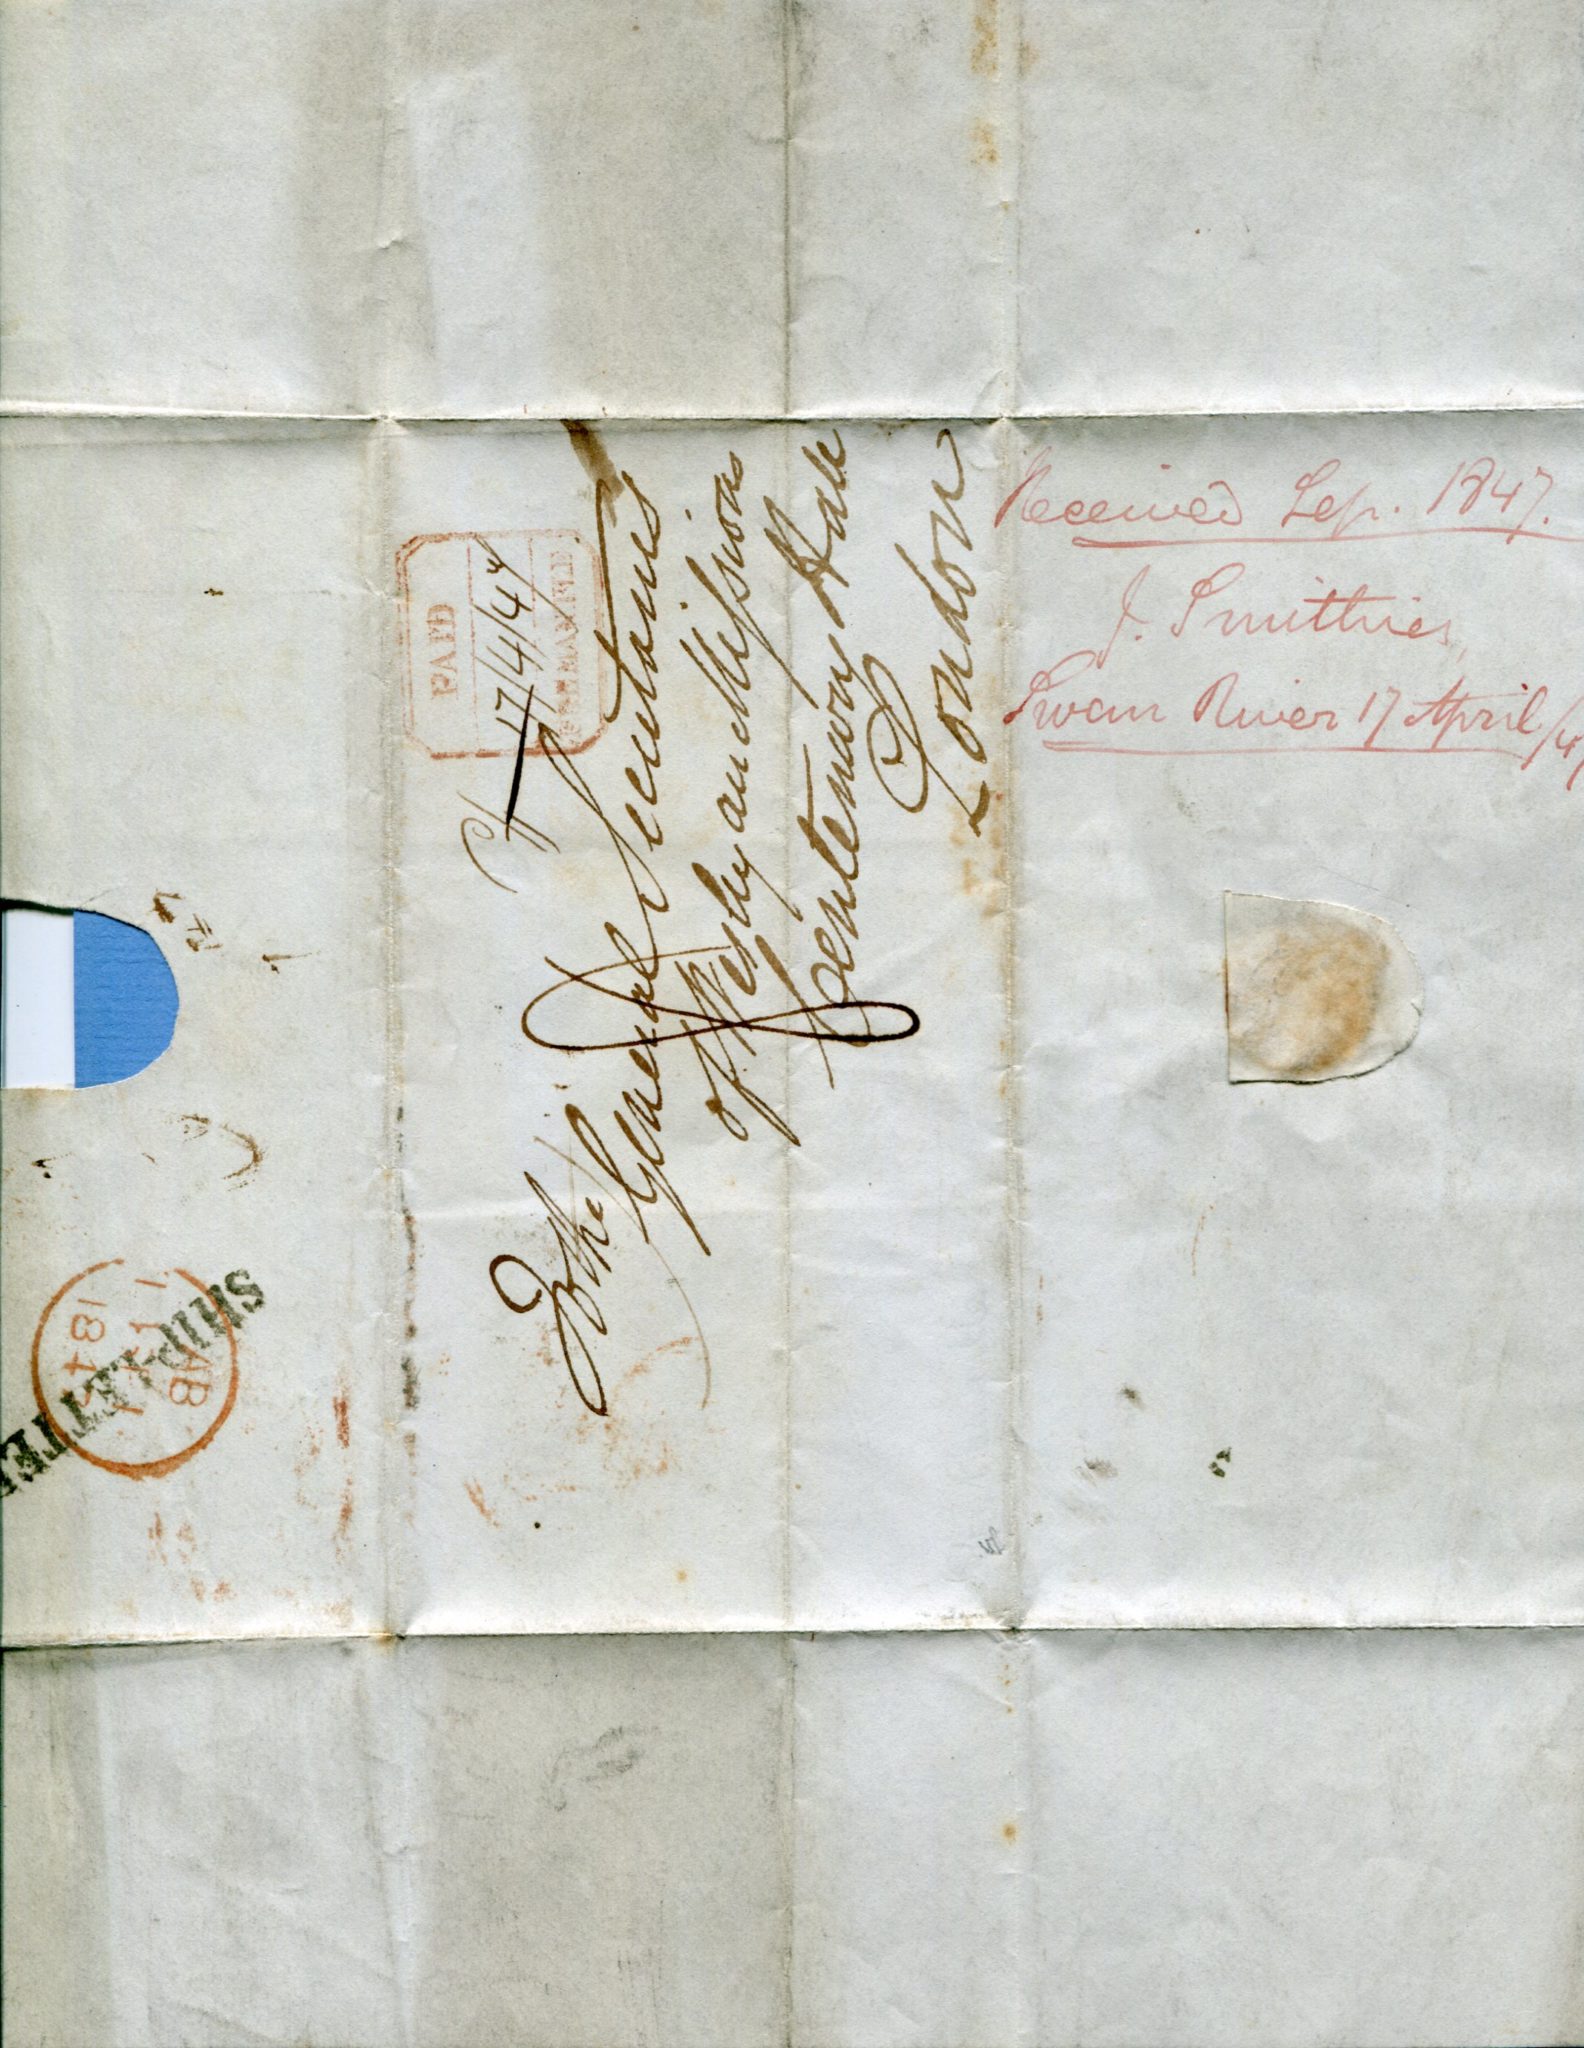 PAID
17/4/47
FREMANTLE
To the General Secretaries
of Wesleyan Missions
Centenary Hall
London
Received Sep. 1847.
J. Smithies,
Swan River 17 April/47
SHIP-LETTER
1847